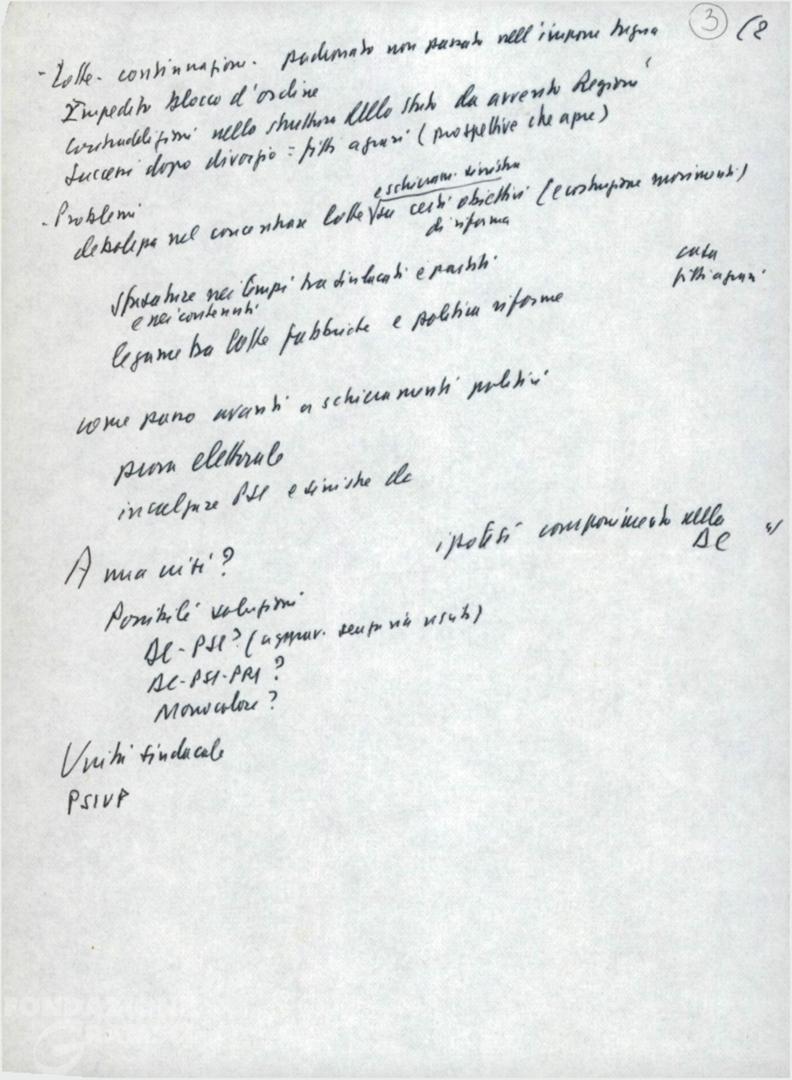 3 (8
- Lotte - continuazione. padronato non passato nell'imporre tregua
Impedito blocco d'ordine
Contraddizioni nella struttura dello Stato da avvento Regioni
Successi dopo divorzio = fitti agrari (prospettive che apre)
- Problemi
e schieram. sinistra
debolezza nel concentrare lotte su certi obiettivi (e costruzione movimenti)
di riforma
casa
fitti agrari
sfasature nei tempi tra sindacati e partiti
e nei contenuti
legame tra lotte fabbriche e politica riforme
come passo avanti a schieramenti politici
prova elettorale
incalzare PSI e sinistre dc
ipotesi componimento nella
DC
A una crisi?
Possibili soluzioni
DC-PSI? (senza
DC-PSI-PRI?
Monocolore?
Unità sindacale
PSIUP
FONDAZIONE
GRAMSCI